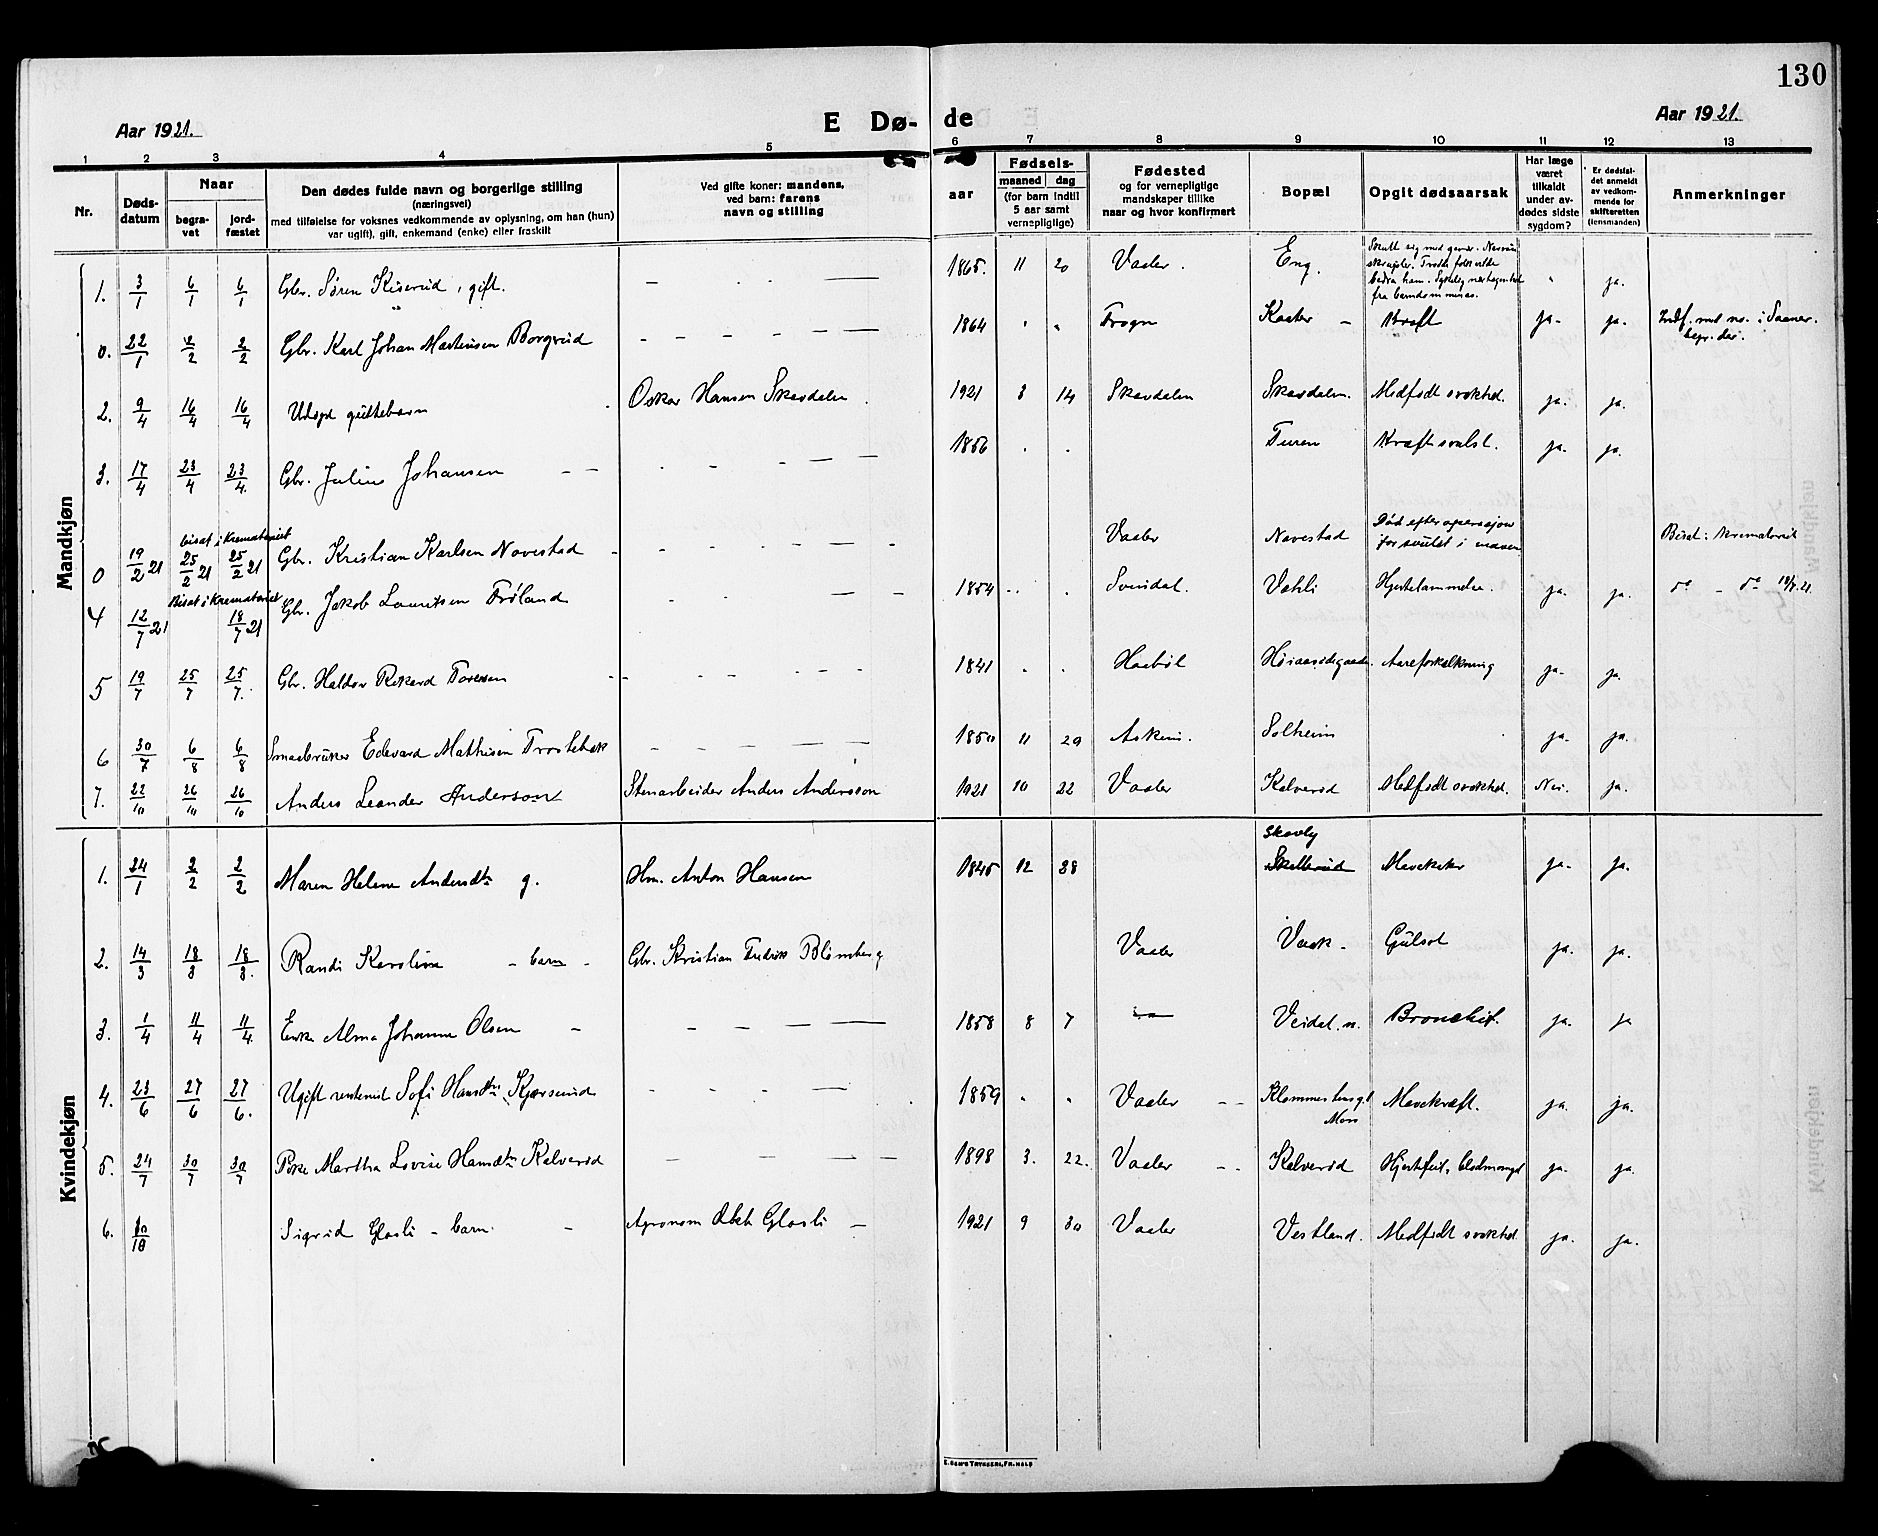 130
Aar 1921.
E Dø- de
Aar 1921.
1 2 3 4 5 6 7 8 9 10 11 12 13
Nr.
Døds-
datum
Naar
begra-
vet
jord-
fæstet
Den dødes fulde navn og borgerlige stilling
(næringsvei)
med tilføielse for voksnes vedkommende av oplysning, om han (hun)
var ugift), gift, enkemand (enke) eller fraskilt
Ved gifte koner: mandens,
ved barn: farens
navn og stilling
aar
Fødsels-
maaned dag
(for barn indtil
5 aar samt
vernepligtige)
Fødested
og for vernepligtige
mandskaper tillike
naar og hvor konfirmert
Bopæl
Opgit dødsaarsak
Har læge
været
tilkaldt
under av-
dødes sidste
sygdom?
Er dødsfal-
det anmeldt
av vedkom-
mende for
skifteretten
(lensmanden)
Anmerkninger
Mandkjøn
1. 3/1 6/1 6/1 Gbr. Søren Kiserud, gift. — 1865. 11 20 Vaaler. Eng. Skutt sig med gevær. ja.
fra barndommen av.
0. 22/1 2/2 2/2 Gbr. Karl Johan Martinsen Borgerud — 1864 Frogn Kaater — Kræft ja- ja. Indf. med no. i Saaner.
begr. der.
2. 9/4 16/4 16/4 Udøpt guttebarn Oskar Hansen Skavdalen 1921 3 14 Skavdalen Skavdalen. Medfødt svakhed. ja. ja.
3. 17/4 23/4 23/4. Gbr. Julius Johansen — — 1856 Turen Kræftsvulst. ja- ja.
bisat i Krematoriet
0 19/2 21 25/2 21 25/2 21 Gbr. Kristian Karlsen Navestad — Vaaler Navestad Død efter operasjon
for svulst i maven Bisat i krematoriet
Bisat i Krematoriet
4 12/7 21 18/7 21 Gbr. Jakob Lauritsen Frøland 1854 Svindal. Vahli Hjertelammelse. ja. ja. do - do 18/7.21.
5 19/7 25/7 25/7. Gbr. Haldor Rikard Toresen 1841 Haabøl Aareforkalkning ja- ja.
6 30/7 6/8 6/8 Smaabruker Edevard Mathisen Trostebæk 1850 11 29 Askim. Solheim ja- ja.
7. 22/10 26/10 26/10 Anders Leander Anderson Stenarbeider Anders Andersson 1921 10 22 Vaaler Kalverød Medfødt svakhed. Nei. ja.
Kvindekjøn
Skovly
1. 24/1 2/2 2/2 Maren Helene Andersdtr g. Hm. Anton Hansen 1845 12 28 Skallerud Mavekatar ja- ja.
2. 14/3 18/3 18/3. Randi Karoline - barn - Gbr. Kristian Fredrik Blomberg Vaaler Vaak- Gulsot ja. ja.
3. 1/4 11/4 11/4. Enke Alma Johanne Olsen — 1858 8 7 Veidal. n. Bronchit. ja. ja
4. 23/6 27/6 27/6. Ugift rentenist Sofi Hansdtr. Kjærserud 1859 Vaaler Klommestensgt
Moss Mavekræft. ja. ja.
5. 24/7 30/7 30/7 Pike Martha Lovise Hansdtr Kalverød — 1898 3. 22. Vaaler Kalverød Hjertfeil, blodmangel ja- ja.
6. 10/10 Sigrid Glosli - barn. Agronom Glosli — 1921 9 30 Vaaler Vestland. Medfødt svakhed ja. ja.